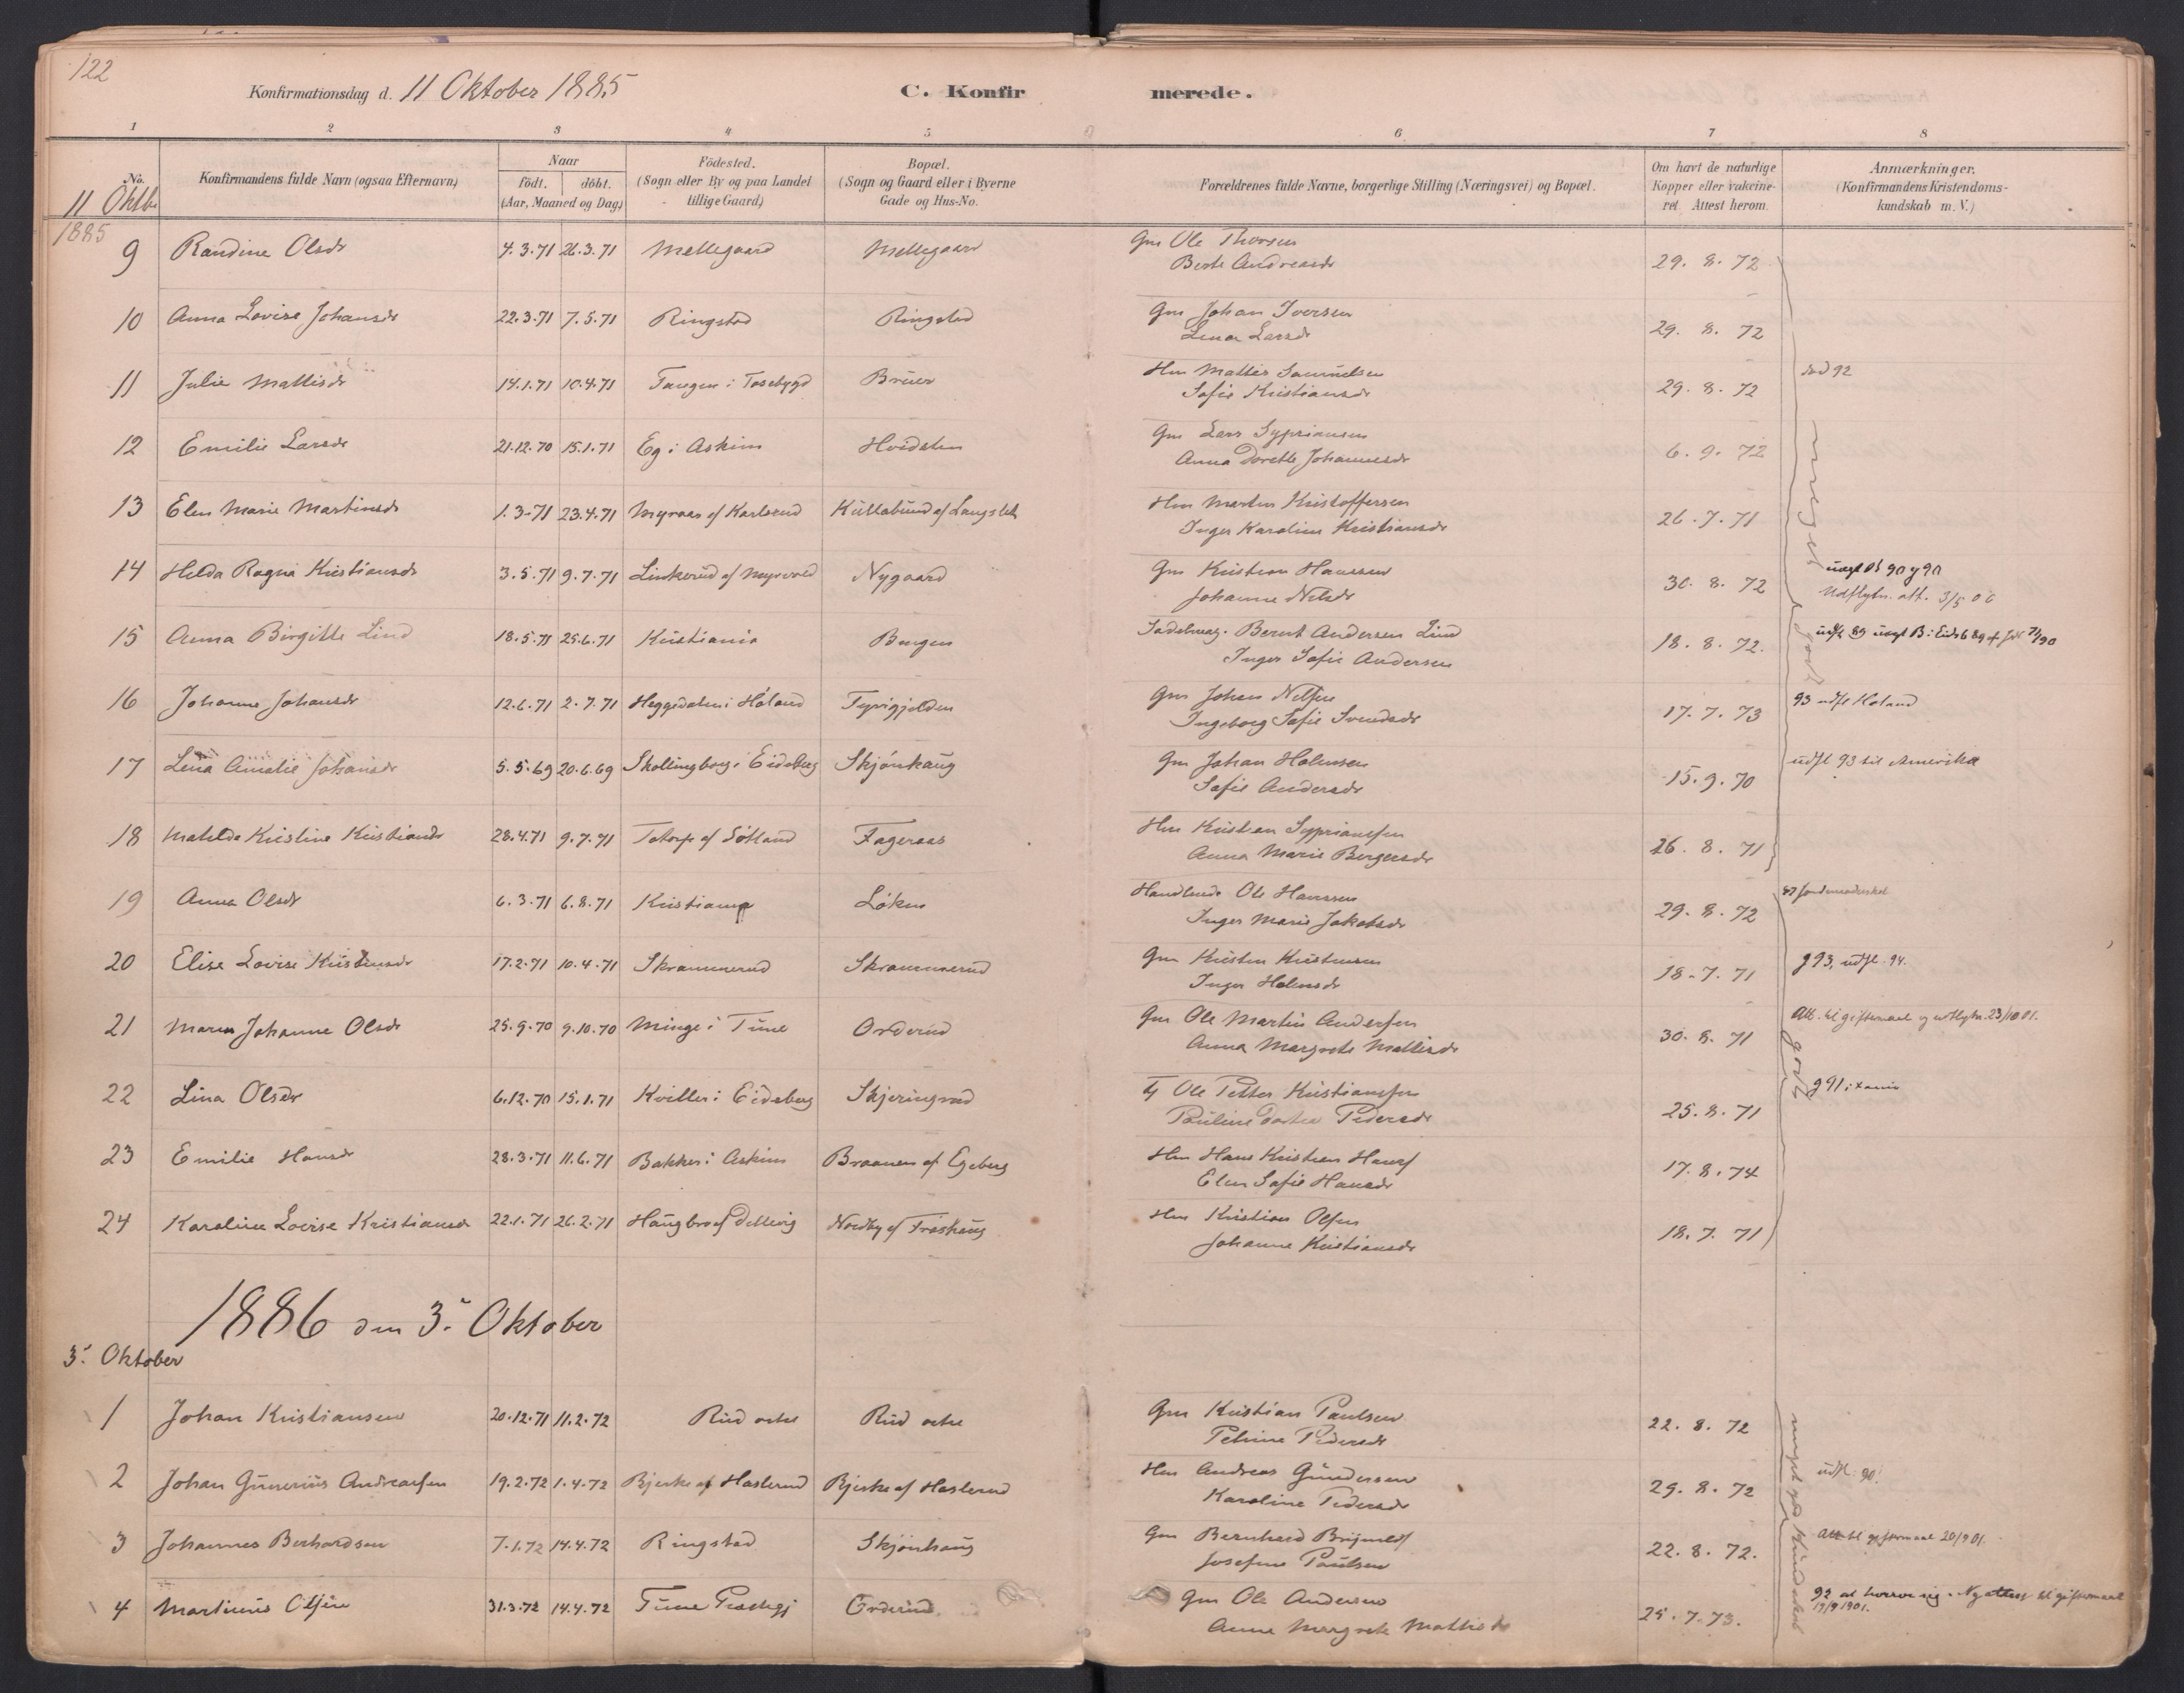 122
Konfirmationsdag d. 11 Oktober 1885
C. Konfirmerede.
1 2 3 4 5 6 7 8
No.
Konfirmandens fulde Navn (ogsaa Efternavn)
Naar
födt. döbt.
(Aar, Maaned og Dag)
Födested.
(Sogn eller By og paa Landet tillige Gaard)
Bopæl.
(Sogn og Gaard eller i Byerne Gade og Hus-No.
Forældrenes fulde Navne, borgerlige Stilling (Næringsvei) og Bopæl.
Om havt de naturlige Kopper eller vakcineret. Attest herom.
Anmærkninger.
(Konfirmandens Kristendomskundskab m. V.)
11 Oktbr
1885
9 Randine Olsdr 4.3.71 26.3.71 Mellegaard Mellegaard Gm Ole Thorsen
Berte Andreasdr 29. 8. 72
10 Anna Lovise Johansdr 22.3.71 7.5.71 Ringstad Ringstad Gm Johan Iversen
Lena Larsdr 29. 8. 72
11 Julie Mattisdr 14.1.71 10.4.71 Tangen i Tosebygd Bruer Hm Mattis Samuelsen
Sofie Kristiansdr 29. 8. 72 død 92
12 Emilie Larsdr 21.12.70 15.1.71 Eg i Askim Hvidsten Gm Lars Sypriansen
Anna Dorethe Johannesdr 6. 9. 72
13 Elen Marie Martinsdr 1.3.71 23.4.71 Myraas af Karlsrud Kullebund af Langsleth Hm Martin Kristoffersen
Inger Karoline Kristiansdr 26. 7. 71
meget godt
14 Helda Ragna Kristiansdr 3.5.71 9.7.71 Linkerud af Myrvold Nygaard Gm Kristian Hanssen
Johanne Nilsdr 30. 8. 72
Udflytn. att. 3/5 06
15 Anna Birgitte Lind 18.5.71 25.6.71 Kristiania Bergen Sadelmag. Bernt Andersen Lind
Inger Sofie Andersen 18. 8. 72.
16 Johanne Johansdr 12.6.71 2.7.71 Heggedalen i Høland Fyrigjelden Gm Johan Nilsen
Ingeborg Sofie Svendsdr 17. 7. 73 93 udfl Høland
17 Lena Amalie Johansdr 5.5.69 20.6.69 Skollingborg i Eidsberg Skjønhaug Gm Johan Holmsen
Sofie Andersdr 15. 9. 70 udfl 93 til Amerika
18 Matilde Kristine Kristiansdr 28.4.71 9.7.71 Totorp af Søtland Fageraas Hm Kristian Syprianssen
Anna Marie Borgersdr 26. 8. 71
19 Anna Olsdr 6.3.71 6.8.71 Kristiania Løken Handlende Ole Hanssen
Inger Marie Jakobsdr 29. 8. 72
20 Elise Lovise Kristensdr 17.2.71 10.4.71 Skrammerud Skrammerud Gm Kristen Kristensen
Inger Holmsdr 18. 7. 71 g 93, udfl. 94.
21 Maren Johanne Olsdr 25.9.70 9.10.70 Minge i Tune Orderud Gm Ole Martin Andersen
Anna Margrete Mattisdr 30. 8. 71 Att. til giftermaal og udflytn. 23/10 01.
godt
22 Lina Olsdr 6.12.70 15.1.71 Kviller i Eidsberg Skjeringrud Tj Ole Petter Kristianssen
Pauline Dortea Pedersdr 25. 8. 71
23 Emilie Hansdr 28.3.71 11.6.71 Bakker i Askim Braanen af Egeberg Hm Hans Kristian Hanss
Elen Sofie Hansdr 17. 8. 74
24 Karoline Lovise Kristiansdr 22.1.71 26.2.71 Haugbro af Dillevig Nordby af Frøshaug Hm Kristian Olsen
Johanne Kristiansdr 18. 7. 71
1886 den 3. Oktober
3. Oktober
1 Johan Kristiansen 20.12.71 11.2.72 Rud østre Rud østre Gm Kristian Paulsen
Petrine Pedersdr 22. 8. 72
2 Johan Gunerius Andreassen 19.2.72 1.4.72 Bjerke af Haslerud Bjerke af Haslerud Hm Andreas Gundersen
Karoline Pedersdr 29. 8. 72 udfl. 90!
3 Johannes Berhardsen 7.1.72 14.4.72 Ringstad Skjønhaug Gm Bernhard
Josefine Paulsen 22. 8. 72. Att til giftermaal 20/9 01.
4 Martinus Olsen 31.3.72 14.4.72 Tune Præstegj Orderud Gm Ole Andersen
Anne Margrete Mattisdr 25. 7. 73. Ny attest til giftermaal
19/9 1901.
meget god Kundskab